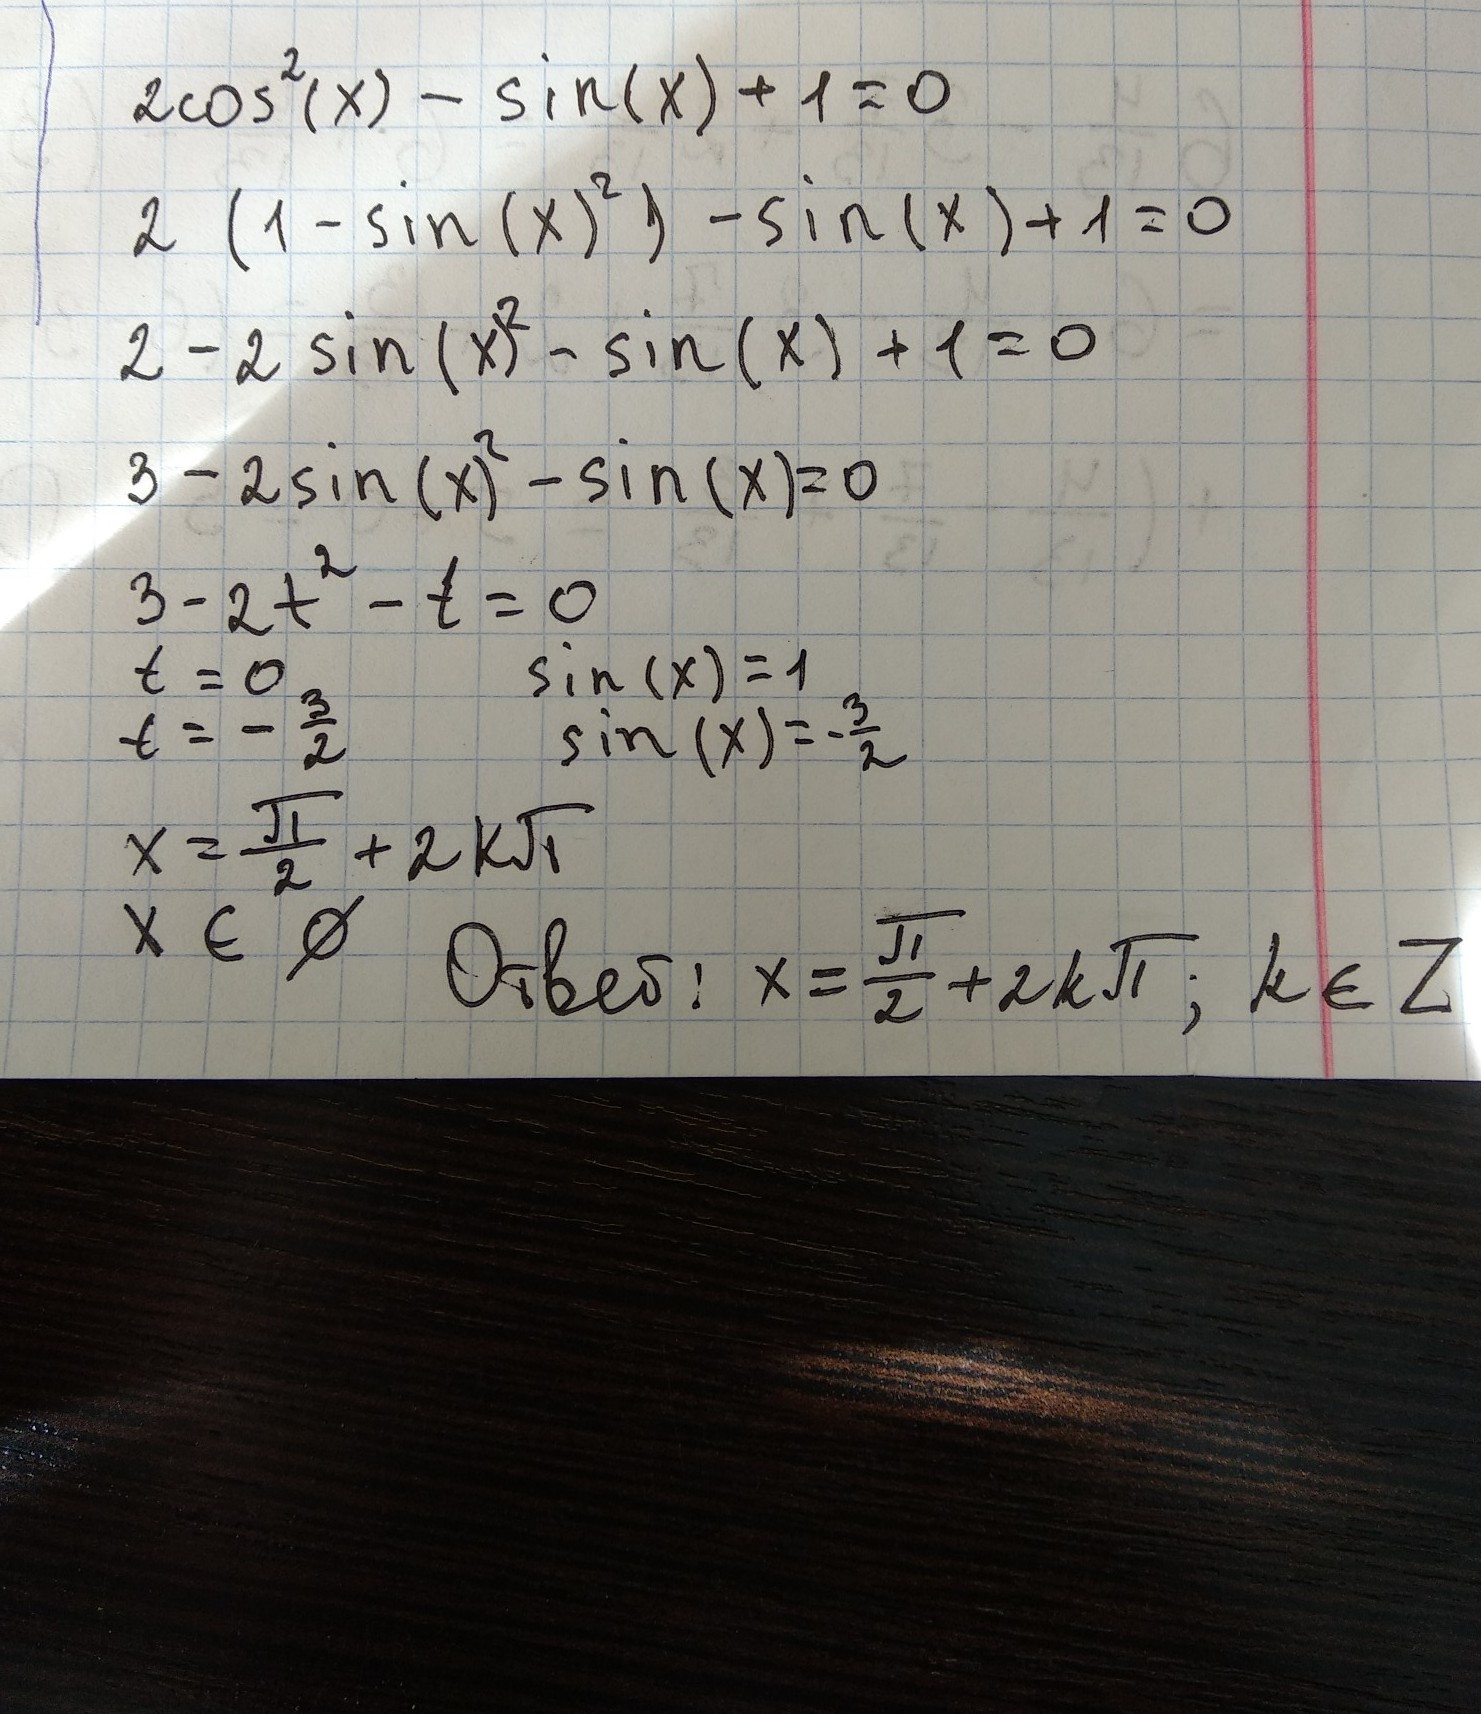 2cos²(x) - sin(x) + 1 = 0
2 (1 - sin(x)²) - sin(x) + 1 = 0
2 - 2 sin(x)² - sin(x) + 1 = 0
3 - 2sin(x)² - sin(x) = 0
3 - 2t² - t = 0
t = 0 sin(x) = 1
t = - 3/2 sin(x) = - 3/2
x = π/2 + 2kπ
x ∈ ∅ Ответ: x = π/2 + 2kπ; k ∈ Z